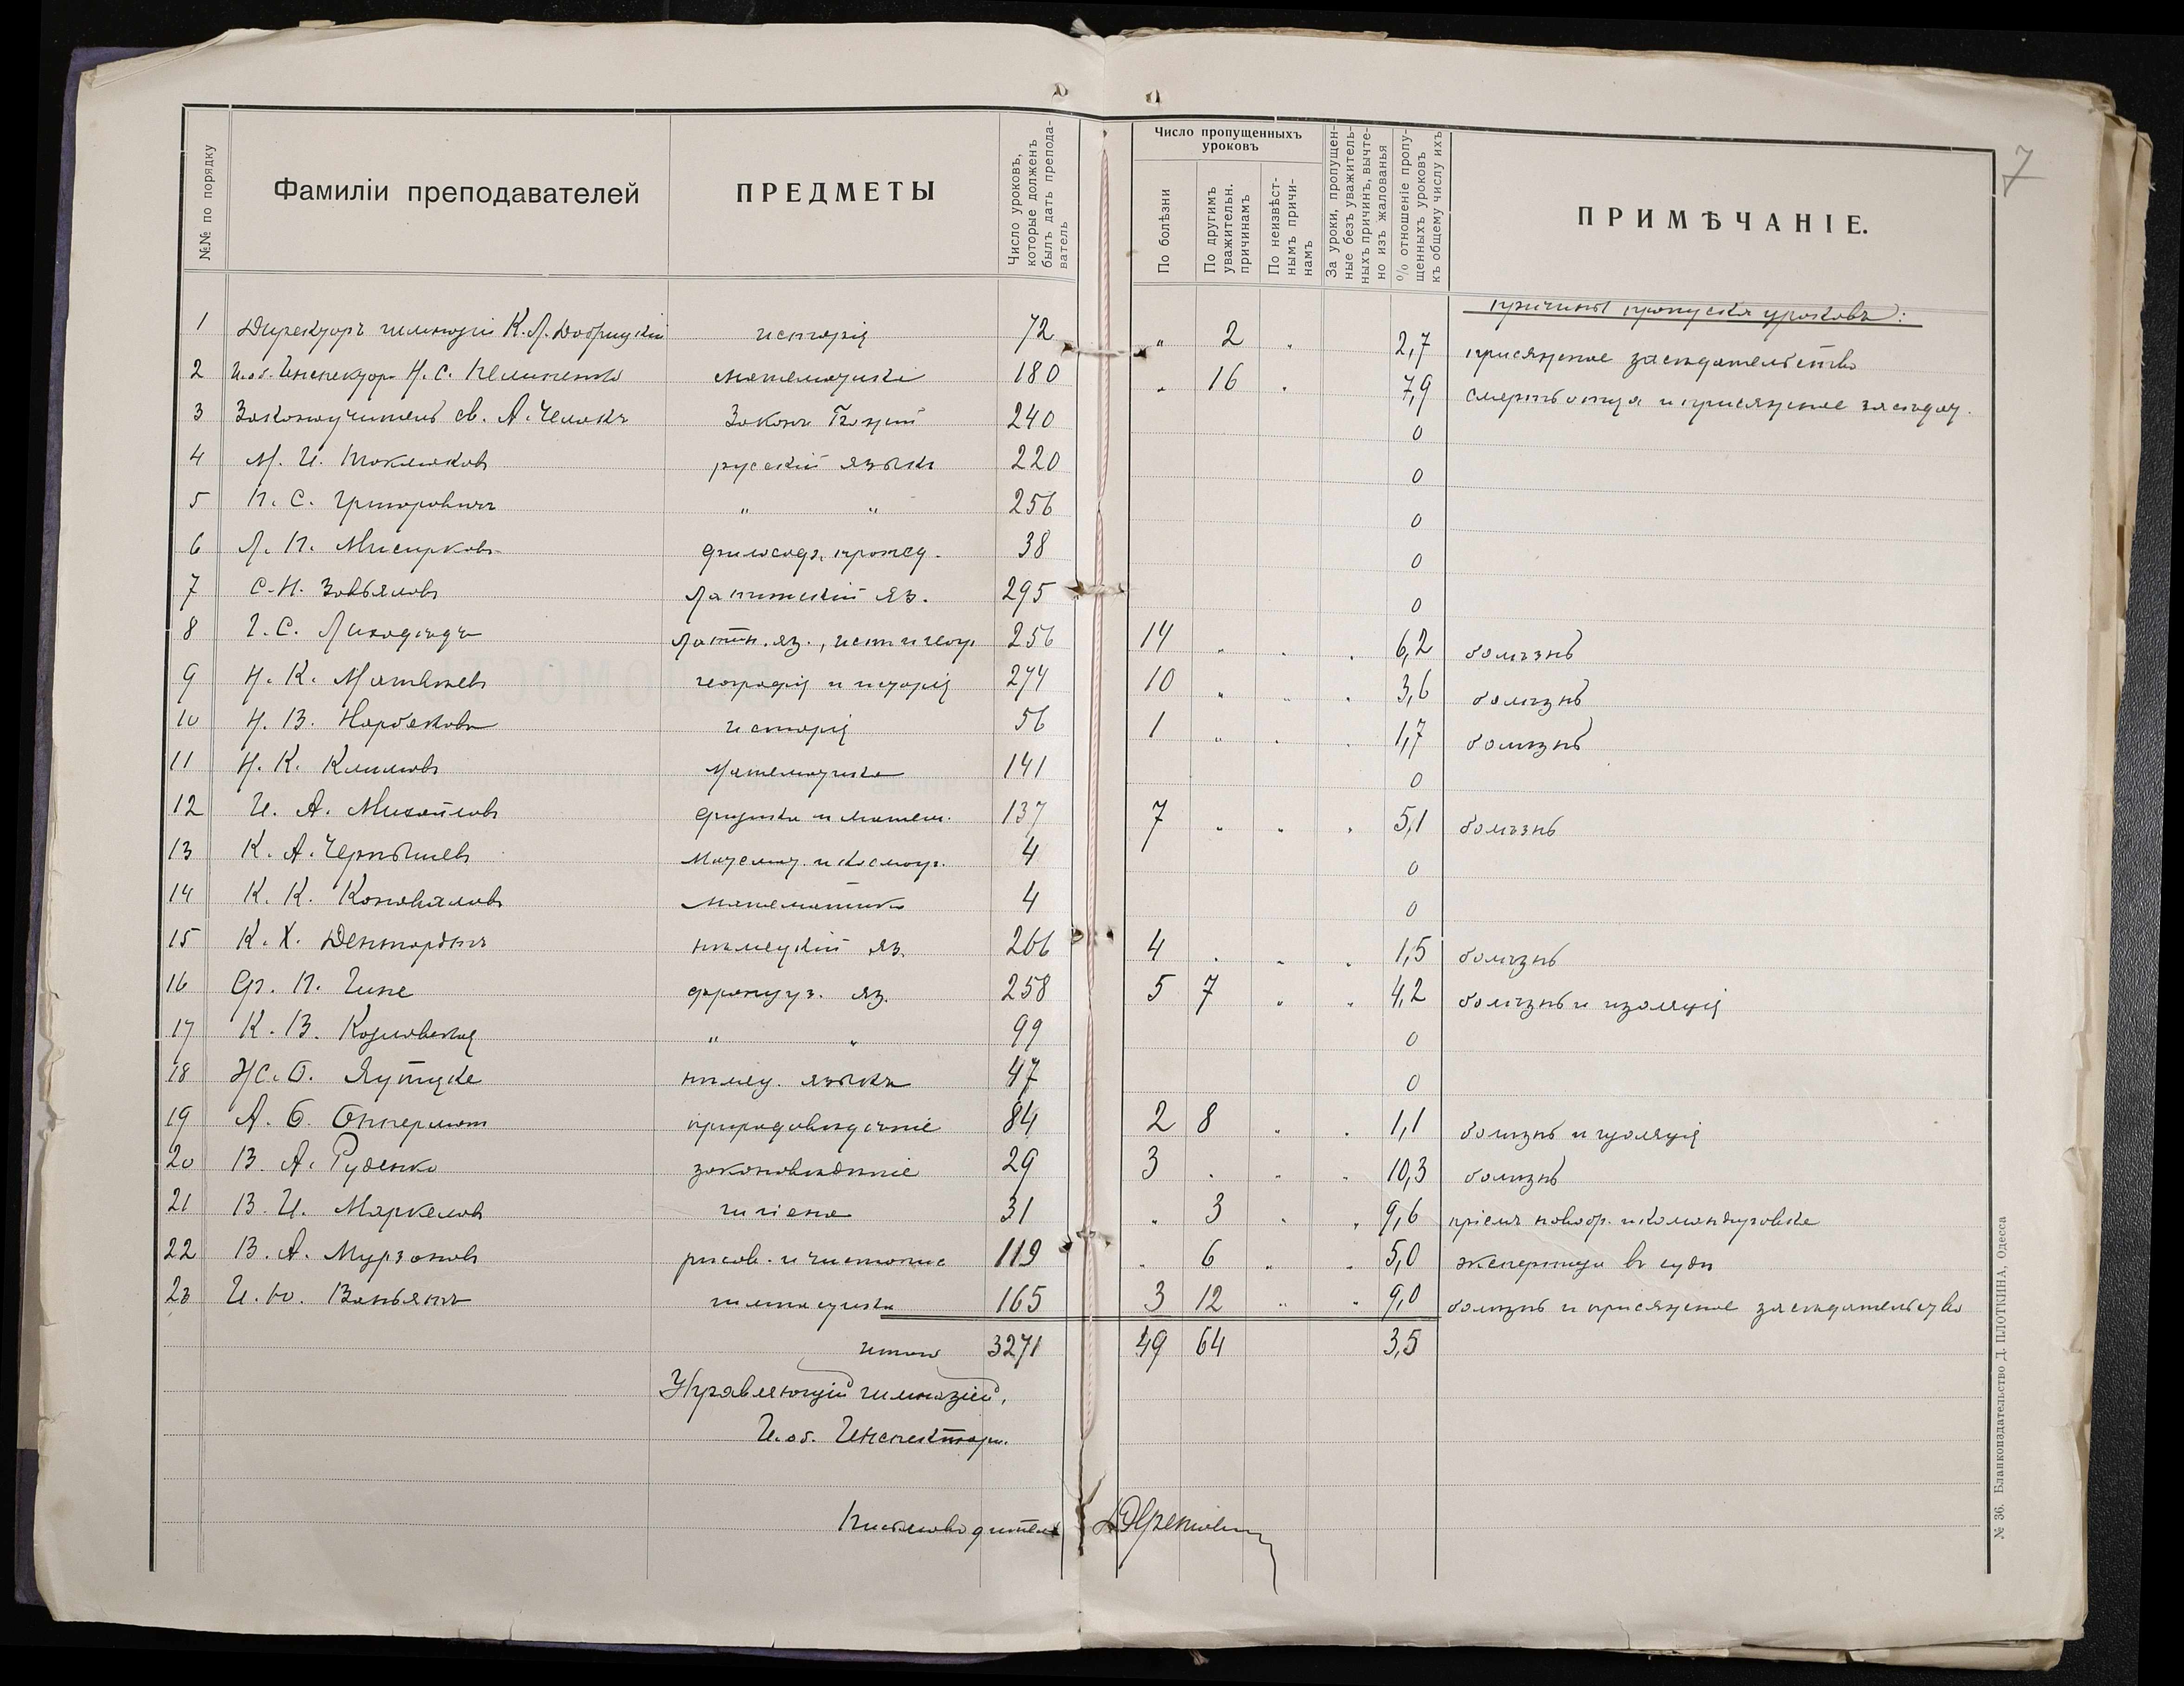 7
№№ по порядку
Фамиліи преподавателей
ПРЕДМЕТЫ
Число уроковъ, которые долженъ былъ дать преподаватель
Число пропущенныхъ уроковъ
По болѣзни
По другимъ уважительн. причинамъ
По неизвѣстнымъ причинамъ
За уроки, пропущенные безъ уважительныхъ причинъ, вычтено изъ жалованья
% отношеніе пропущенныхъ уроковъ къ общему числу ихъ
ПРИМѢЧАНІЕ.
причины пропуска уроковъ:
1 Директоръ гимназіи К. Л. Добрицкій исторія 72 " 2 " 2,7 присяжное засѣдательство
2 И. об. Инспектор. Н. С. математика 180 " 16 " 7,9 смерть отца и присяжное засѣдат.
3 Законоучитель св. А. Челакъ Законъ Божій 240 0
4 М. И. русскій языкъ 220 0
5 П. С. Григоровичъ " " 256 0
6 Л. П. Мисирковъ философ. пропед. 38 0
7 С. Н. Завьяловъ Латинскій яз. 295 0
8 Г. С. Латин. яз., ист. и геогр. 256 14 " " " 6,2 болѣзнь
9 Н. К. Матвѣевъ географія и исторія 274 10 " " " 3,6 болѣзнь
10 Н. В. исторія 56 1 " " " 1,7 болѣзнь
11 Н. К. Климовъ Математика 141 0
12 И. А. Михайловъ физика и матем. 137 7 " " " 5,1 болѣзнь
13 К. А. Чернышевъ Математ. и космогр. 4 0
14 К. К. Коноваловъ математика 4 0
15 К. Х. нѣмецкій яз. 266 4 " " " 1,5 болѣзнь
16 Фр. П. Гипе француз. яз. 258 5 7 " " 4,2 болѣзнь и изоляція
17 К. В. Козловская " " 99 0
18 нѣмец. языкъ 47 0
19 А. природовѣдѣніе 84 2 8 " " 1,1 болѣзнь и изоляція
20 В. А. Руденко законовѣдѣніе 29 3 " " " 10,3 болѣзнь
21 В. И. Маркеловъ гигіена 31 " 3 " " 9,6 пріемъ новобр. и командировка
22 В. А. Мурзановъ рисов. и чистопис. 119 " 6 " " 5,0 экспертиза въ судѣ
23 И. Ю. Ваньянъ гимнастика 165 3 12 " " 9,0 болѣзнь и присяжное засѣдательство
итого 3271 49 64 3,5
Управляющій гимназіей,
И. об. Инспектора.
Письмоводитель
№ 36. Бланкоиздательство Д. ПЛОТКИНА, Одесса